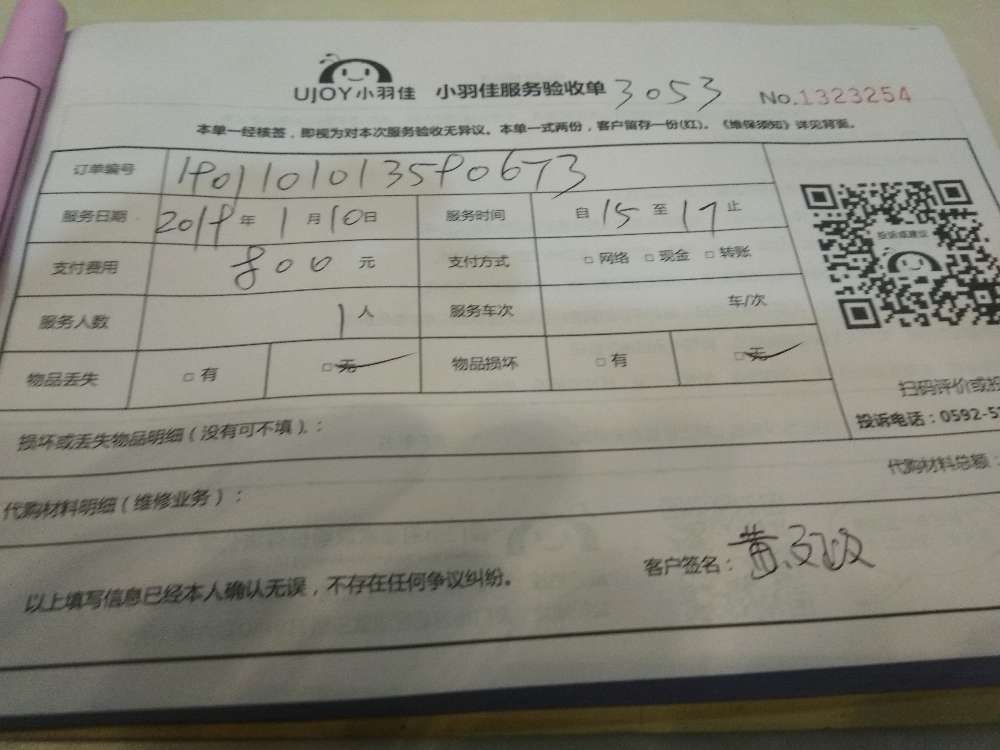 UJOY小羽佳 小羽佳服务验收单 3053 No.1323254
本单一经核签，即视为对本次服务验收无异议。本单一式两份，客户留存一份(红)。《维保须知》详见背面。
订单编号 1901101013590673
服务日期 2019年1月10日 服务时间 自15至17止
投诉或建议
支付费用 800元 支付方式 □网络 □现金 □转账
服务人数 1人 服务车次 车/次
物品丢失 □有 □无 物品损坏 □有 □无
扫码评价或投
投诉电话：0592-5
损坏或丢失物品明细（没有可不填）：
代购材料总额：
代购材料明细（维修业务）：
以上填写信息已经本人确认无误，不存在任何争议纠纷。 客户签名：黄